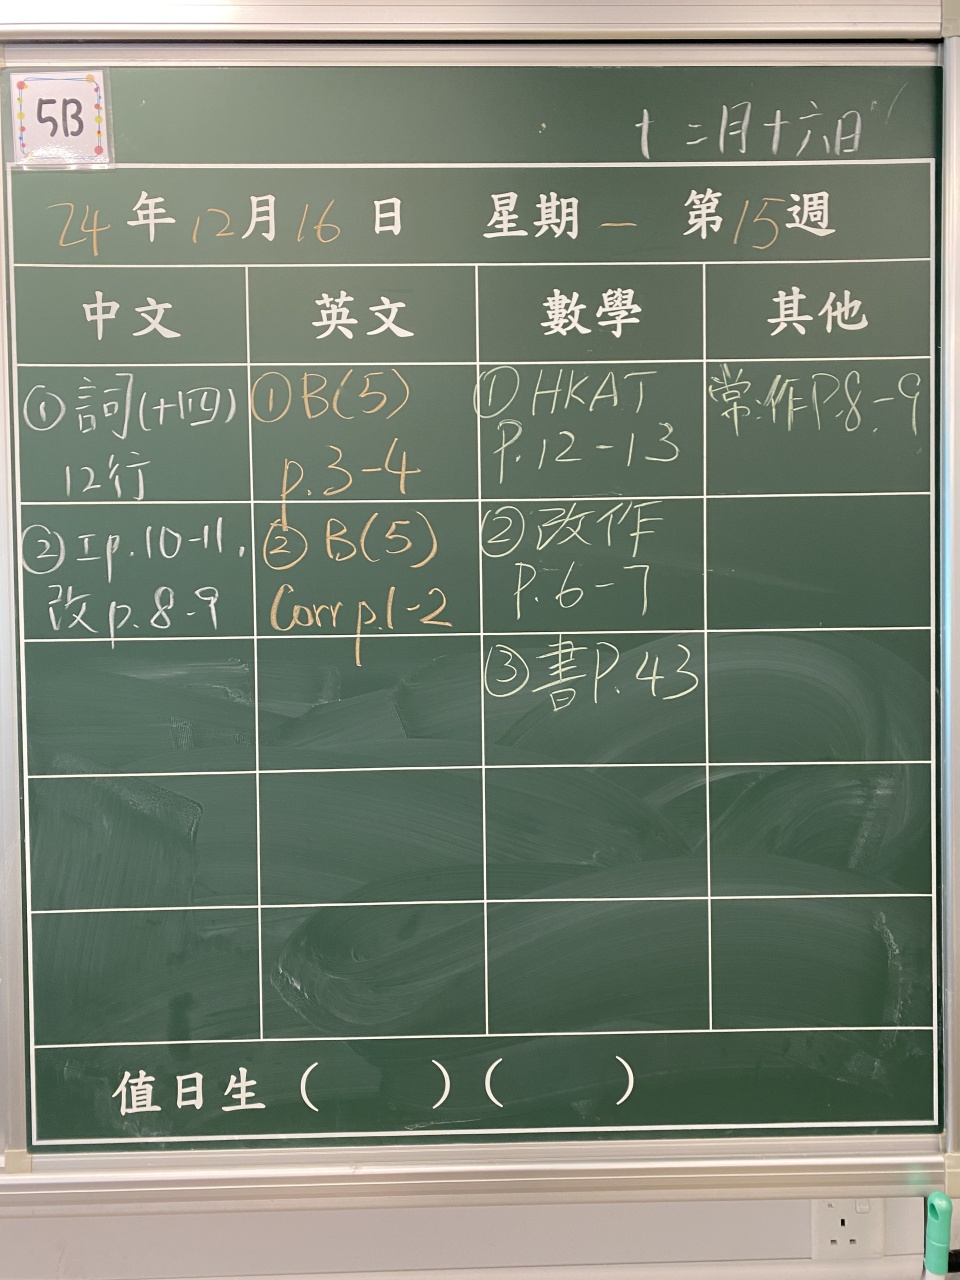 5B
十二月十六日
24年12月16日 星期一 第15週
中文 英文 數學 其他
①詞(十四)
12行
①B(5)
p.3-4
①HKAT
P.12-13
常:作P.8-9
②工p.10-11,
改p.8-9
②B(5)
Corr p.1-2
②改作
P.6-7
③書P.43
值日生( )( )